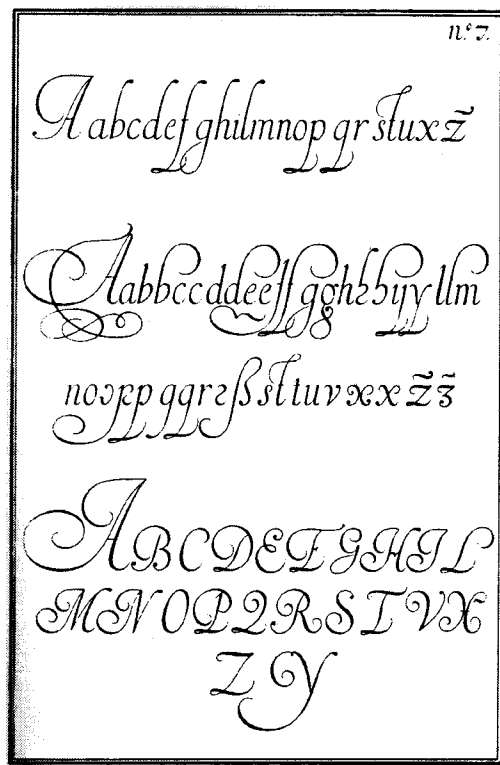 n.º 7.
A abcdefghilmnop qr stuxz̃
Aabbccddeeffgghhhijyllm
noopp qqrrßsttuvxxz̃z̃
ABCDEFGHIL
MNOPQRSTVX
ZY